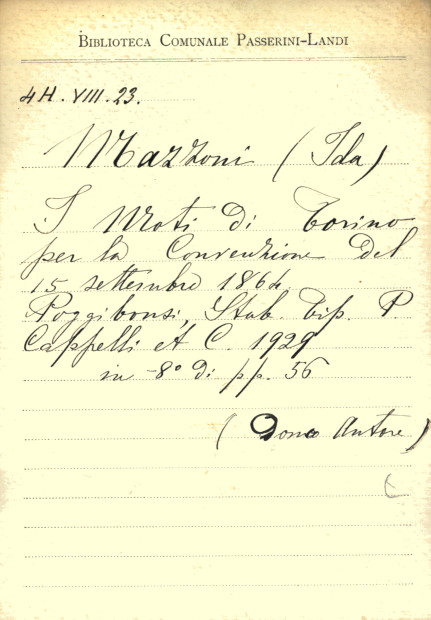 BIBLIOTECA COMUNALE PASSERINI-LANDI
4H. VIII. 23.
Mazzoni (Ida)
I Moti di Torino
per la Convenzione del
15 settembre 1864.
Poggibonsi, Stab. Tip. P.
Cappelli et C. 1929
in-8° di pp. 56
(Dono Autore)